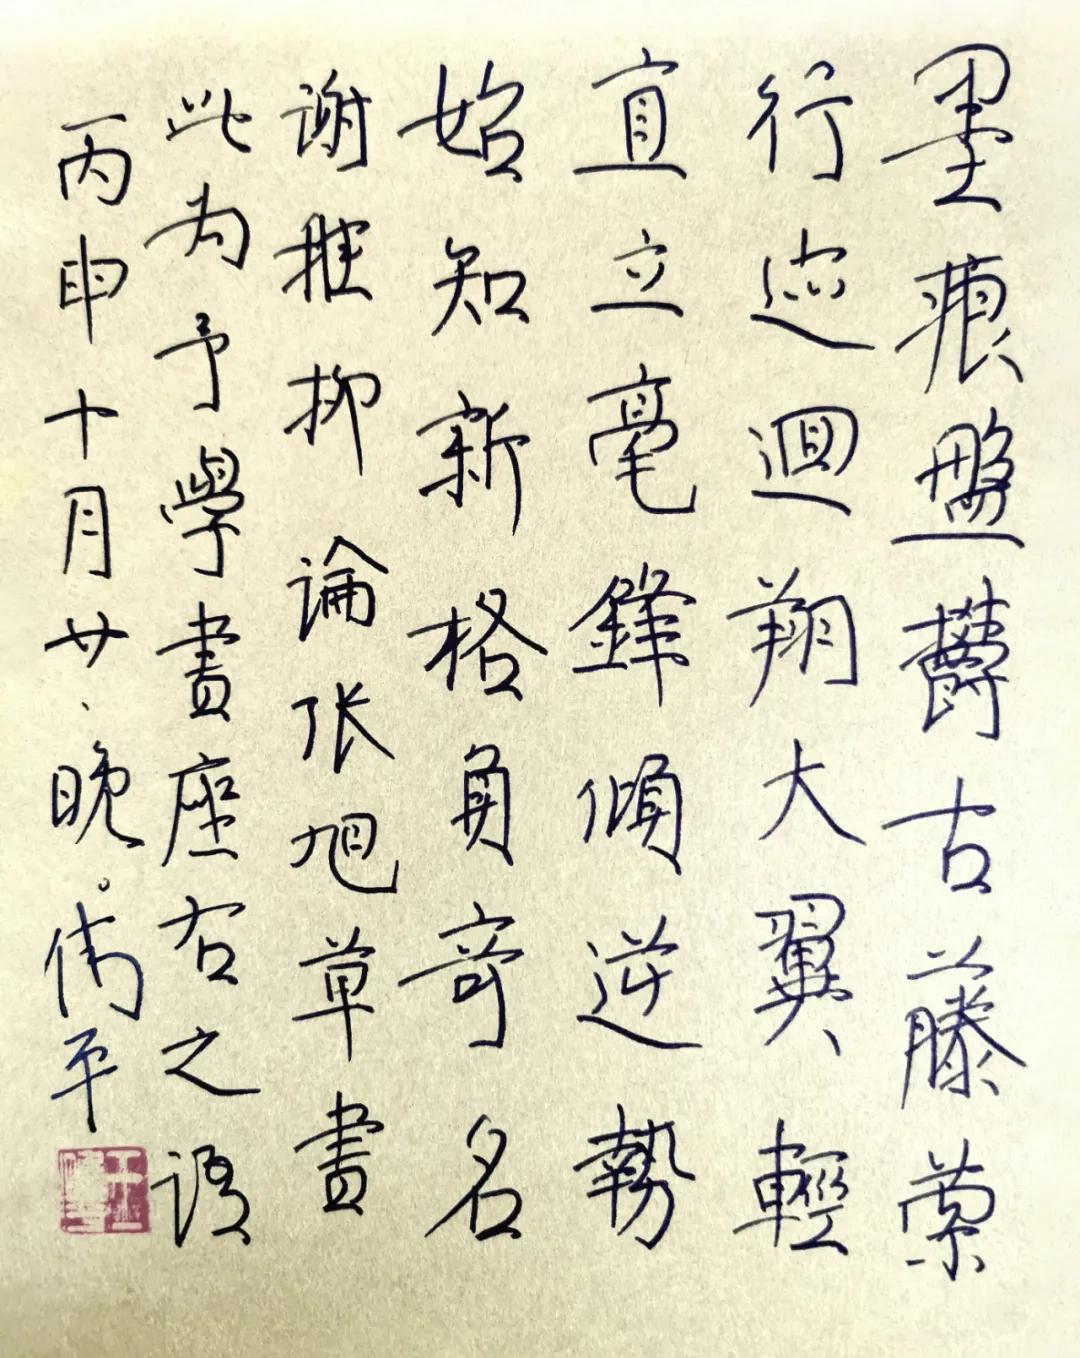 墨痕盤鬱古藤萦
行迹迴翔大翼輕
直立毫鋒傾逆勢
始知新格負奇名
谢稚柳論张旭草書
此为予學書座右之语
丙申十月廿、晚。偉平